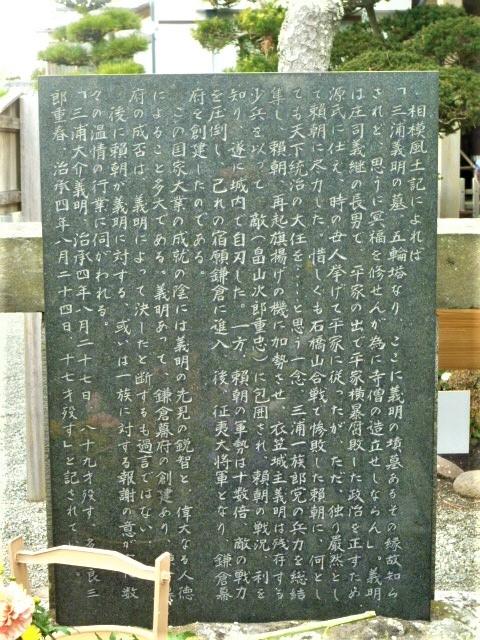 相模風土記によれば
「三浦義明の墓 五輪塔なり、ここに義明の墳墓あるその縁故知ら
されど、思うに冥福を修せんが為に寺僧の造立せしならん」 義明
は庄司義継の長男で、平家の出で平家横暴腐敗した政治を正すため
源氏に仕え、時の世人挙げて平家に従ったが、ただ、独り厳然とし
て頼朝に尽力した。惜しくも石橋山合戦で惨敗した頼朝に、何とし
ても天下統治の大任を…と思う一念、三浦一族郎党の兵力を総結
集し、頼朝、再起旗揚げの機に加勢させ、衣笠城主義明は残存する
少兵を以って、敵(畠山次郎重忠)に包囲され、頼朝の戦況、利を
知り、遂に城内で自刃した。一方、頼朝の軍勢は十数倍、敵の戦力
を圧倒し、己れの宿願鎌倉に進入、後、征夷大将軍となり、鎌倉幕
府を創建したのである。
この国家大業の成就の陰には義明の先見の鋭智と、偉大なる人徳
によること多大である。義明あって、鎌倉幕府の創建あり、
府の成否は、義明によって決したと断ずるも過言ではない。
後に頼朝が義明に対する、或いは一族に対する報謝の意が 数
々の温情の行業に伺がわれる。
「三浦大介義明 治承四年八月二十七日、八十九才歿す、 良三
郎重春 治承四年八月二十四日、十七才歿す」と記されてい 。